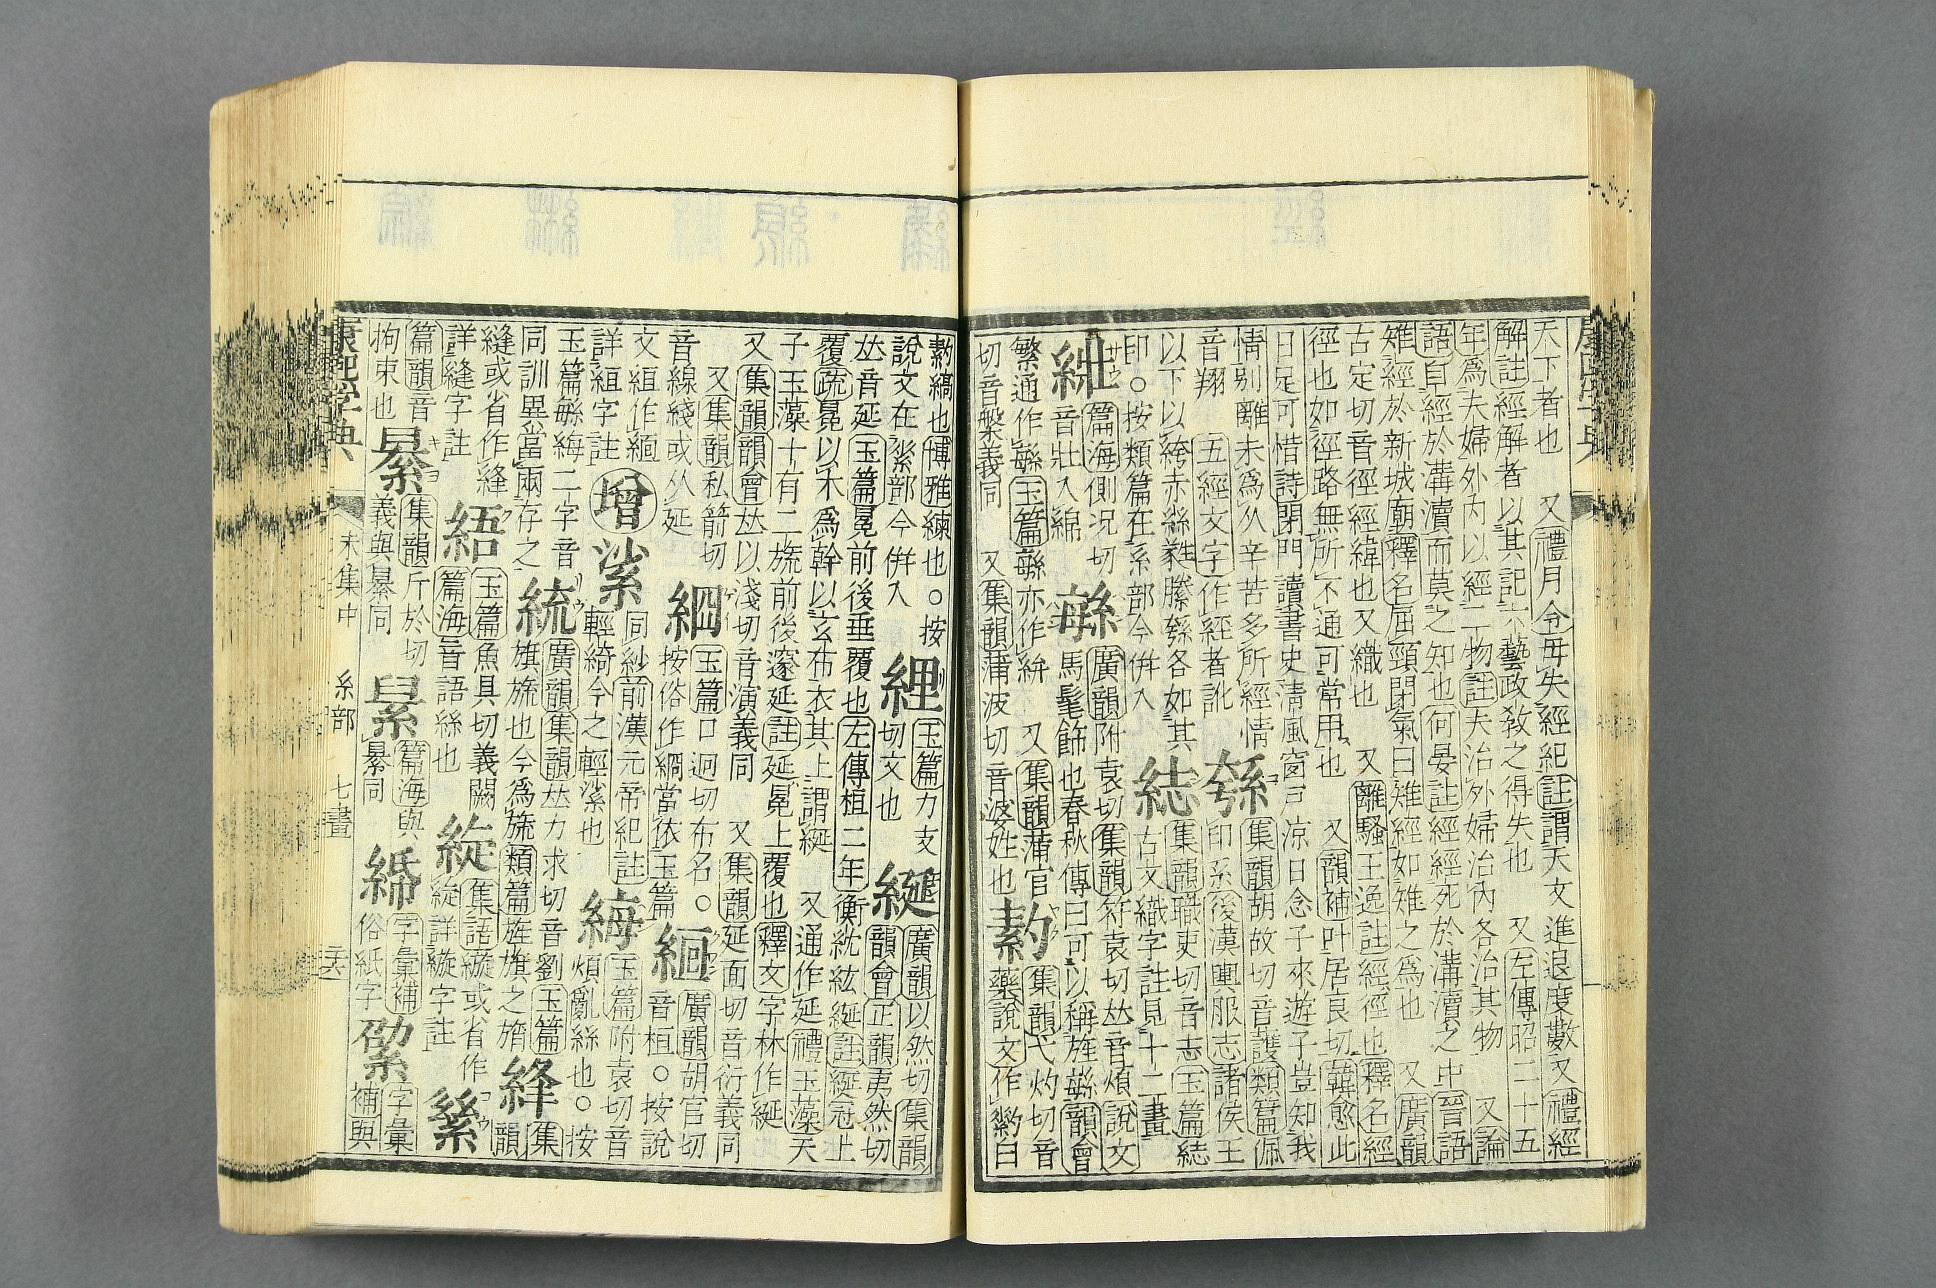 天下者也 又禮月令毋失經紀註謂天文進退度數又禮經
解註經解者以其記六藝政教之得失也 又左傳昭二十五
年爲夫婦外內以經二物註夫治外婦治內各治其物 又論
語自經於溝瀆而莫之知也何晏註經經死於溝瀆之中晉語
雉經於新城廟釋名屈頸閉氣曰雉經如雉之爲也 又廣韻
古定切音徑經緯也又織也 又離騷王逸註經徑也釋名經
徑也如徑路無所不通可常用也 又韻補叶居良切韓愈此
日足可惜詩閉門讀書史淸風窗戸涼日念子來遊子豈知我
情別離未爲久辛苦多所經情
集韻胡故切音護類篇佩
印系後漢輿服志諸侯王
以下以綔赤絲蕤縢綔各如其
音翔 五經文字作經者訛
印○按類篇在系部今併入
綕
集韻職吏切音志玉篇綕
古文織字註見十二畫
篇海側況切
音壯入綿
緐
廣韻附袁切集韻符袁切𠀤音煩說文
馬髦飾也春秋傳曰可以稱旌緐韻會
繁通作緐玉篇緐亦作絣 又集韻蒲官
切音槃義同 又集韻蒲波切音婆姓也
集韻弋灼切音
藥說文作
縞也博雅練也○按
說文在素部今併入
玉篇力支
切文也
綖
廣韻以然切集韻
韻會正韻夷然切
𠀤音延玉篇冕前後垂覆也左傳桓二年衡紞紘綖註綖冠上
覆疏冕以木爲幹以玄布衣其上謂綖 又通作延禮玉藻天
子玉藻十有二旒前後邃延註延冕上覆也釋文字林作綖
又集韻韻會𠀤以淺切音演義同 又集韻延面切音衍義同
又集韻私箭切
音線綫或从延
綗
玉篇口迥切布名○
按俗作綱當依玉篇
絙
廣韻胡官切
音桓○按說
文絙作緪
詳絙字註
增
桬
同紗前漢元帝紀註
輕綺今之輕桬也
䋣
玉篇附袁切音
煩亂絲也○按
玉篇緐䋣二字音
同訓異當兩存之
統
廣韻集韻𠀤力求切音劉玉篇
旗旒也今爲旒類篇旌旗之旓
綘
集韻
縫或省作綘
詳縫字註
䋤
玉篇魚具切義闕
篇海音語絲也
䋢
集韻縼或省作
䋢詳縼字註
篇韻音
拘束也
集韻斤於切
義與綦同
篇海與
綦同
字彙補
俗紙字
字彙
補與
康熙字典
未集中 糸部 七畫